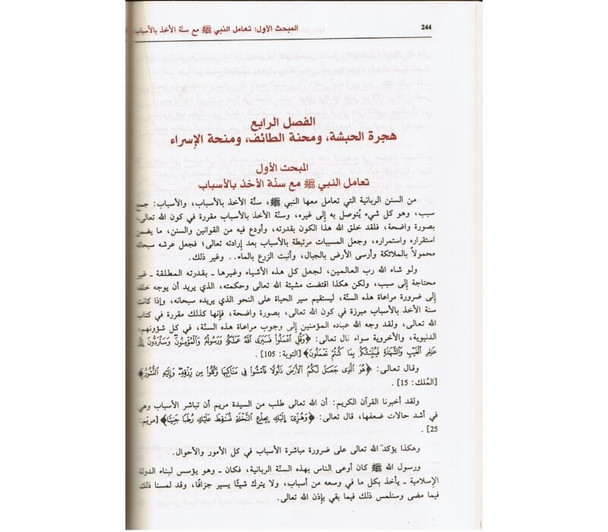 244
المبحث الأول: تعامل النبي ﷺ مع سنّة الأخذ بالأسباب
الفصل الرابع
هجرة الحبشة، ومحنة الطائف، ومنحة الإسراء
المبحث الأول
تعامل النبي ﷺ مع سنّة الأخذ بالأسباب
من السنن الربانية التي تعامل معها النبي ﷺ، سنّة الأخذ بالأسباب، والأسباب: جمع
سبب، وهو كل شيء يُتوصل به إلى غيره، وسنّة الأخذ بالأسباب مقررة في كون الله تعالى
بصورة واضحة، فلقد خلق الله هذا الكون بقدرته، وأودع فيه من القوانين والسنن، ما يضمن
استقراره واستمراره، وجعل المسببات مرتبطة بالأسباب بعد إرادته تعالى؛ فجعل عرشه سبحانه
محمولاً بالملائكة وأرسى الأرض بالجبال، وأنبت الزرع بالماء.. وغير ذلك.
ولو شاء الله رب العالمين، لجعل كل هذه الأشياء وغيرها ـ بقدرته المطلقة ـ غير
محتاجة إلى سبب، ولكن هكذا اقتضت مشيئة الله تعالى وحكمته، الذي يريد أن يوجه خلقه
إلى ضرورة مراعاة هذه السنّة، ليستقيم سير الحياة على النحو الذي يريده سبحانه، وإذا كانت
سنة الأخذ بالأسباب مبرزة في كون الله تعالى، بصورة واضحة، فإنها كذلك مقررة في كتاب
الله تعالى، ولقد وجه الله عباده المؤمنين إلى وجوب مراعاة هذه السنّة، في كل شؤونهم،
الدنيوية، والأخروية سواء قال تعالى: ﴿وَقُلِ اعْمَلُوا فَسَيَرَى اللَّهُ عَمَلَكُمْ وَرَسُولُهُ وَالْمُؤْمِنُونَ وَسَتُرَدُّونَ إِلَى
عَالِمِ الْغَيْبِ وَالشَّهَادَةِ فَيُنَبِّئُكُم بِمَا كُنتُمْ تَعْمَلُونَ﴾ [التوبة: 105].
وقال تعالى: ﴿هُوَ الَّذِي جَعَلَ لَكُمُ الْأَرْضَ ذَلُولًا فَامْشُوا فِي مَنَاكِبِهَا وَكُلُوا مِن رِّزْقِهِ وَإِلَيْهِ النُّشُورُ﴾
[المُلك: 15].
ولقد أخبرنا القرآن الكريم: أن الله تعالى طلب من السيدة مريم أن تباشر الأسباب وهي
في أشد حالات ضعفها، قال تعالى: ﴿وَهُزِّي إِلَيْكِ بِجِذْعِ النَّخْلَةِ تُسَاقِطْ عَلَيْكِ رُطَبًا جَنِيًّا﴾ [مريم:
25].
وهكذا يؤكد الله تعالى على ضرورة مباشرة الأسباب في كل الأمور والأحوال.
ورسول الله ﷺ كان أوعى الناس بهذه السنّة الربانية، فكان ـ وهو يؤسس لبناء الدولة
الإسلامية ـ يأخذ بكل ما في وسعه من أسباب، ولا يترك شيئًا يسير جزافًا، وقد لمسنا ذلك
فيما مضى وسنلمس ذلك فيما بقي بإذن الله تعالى.